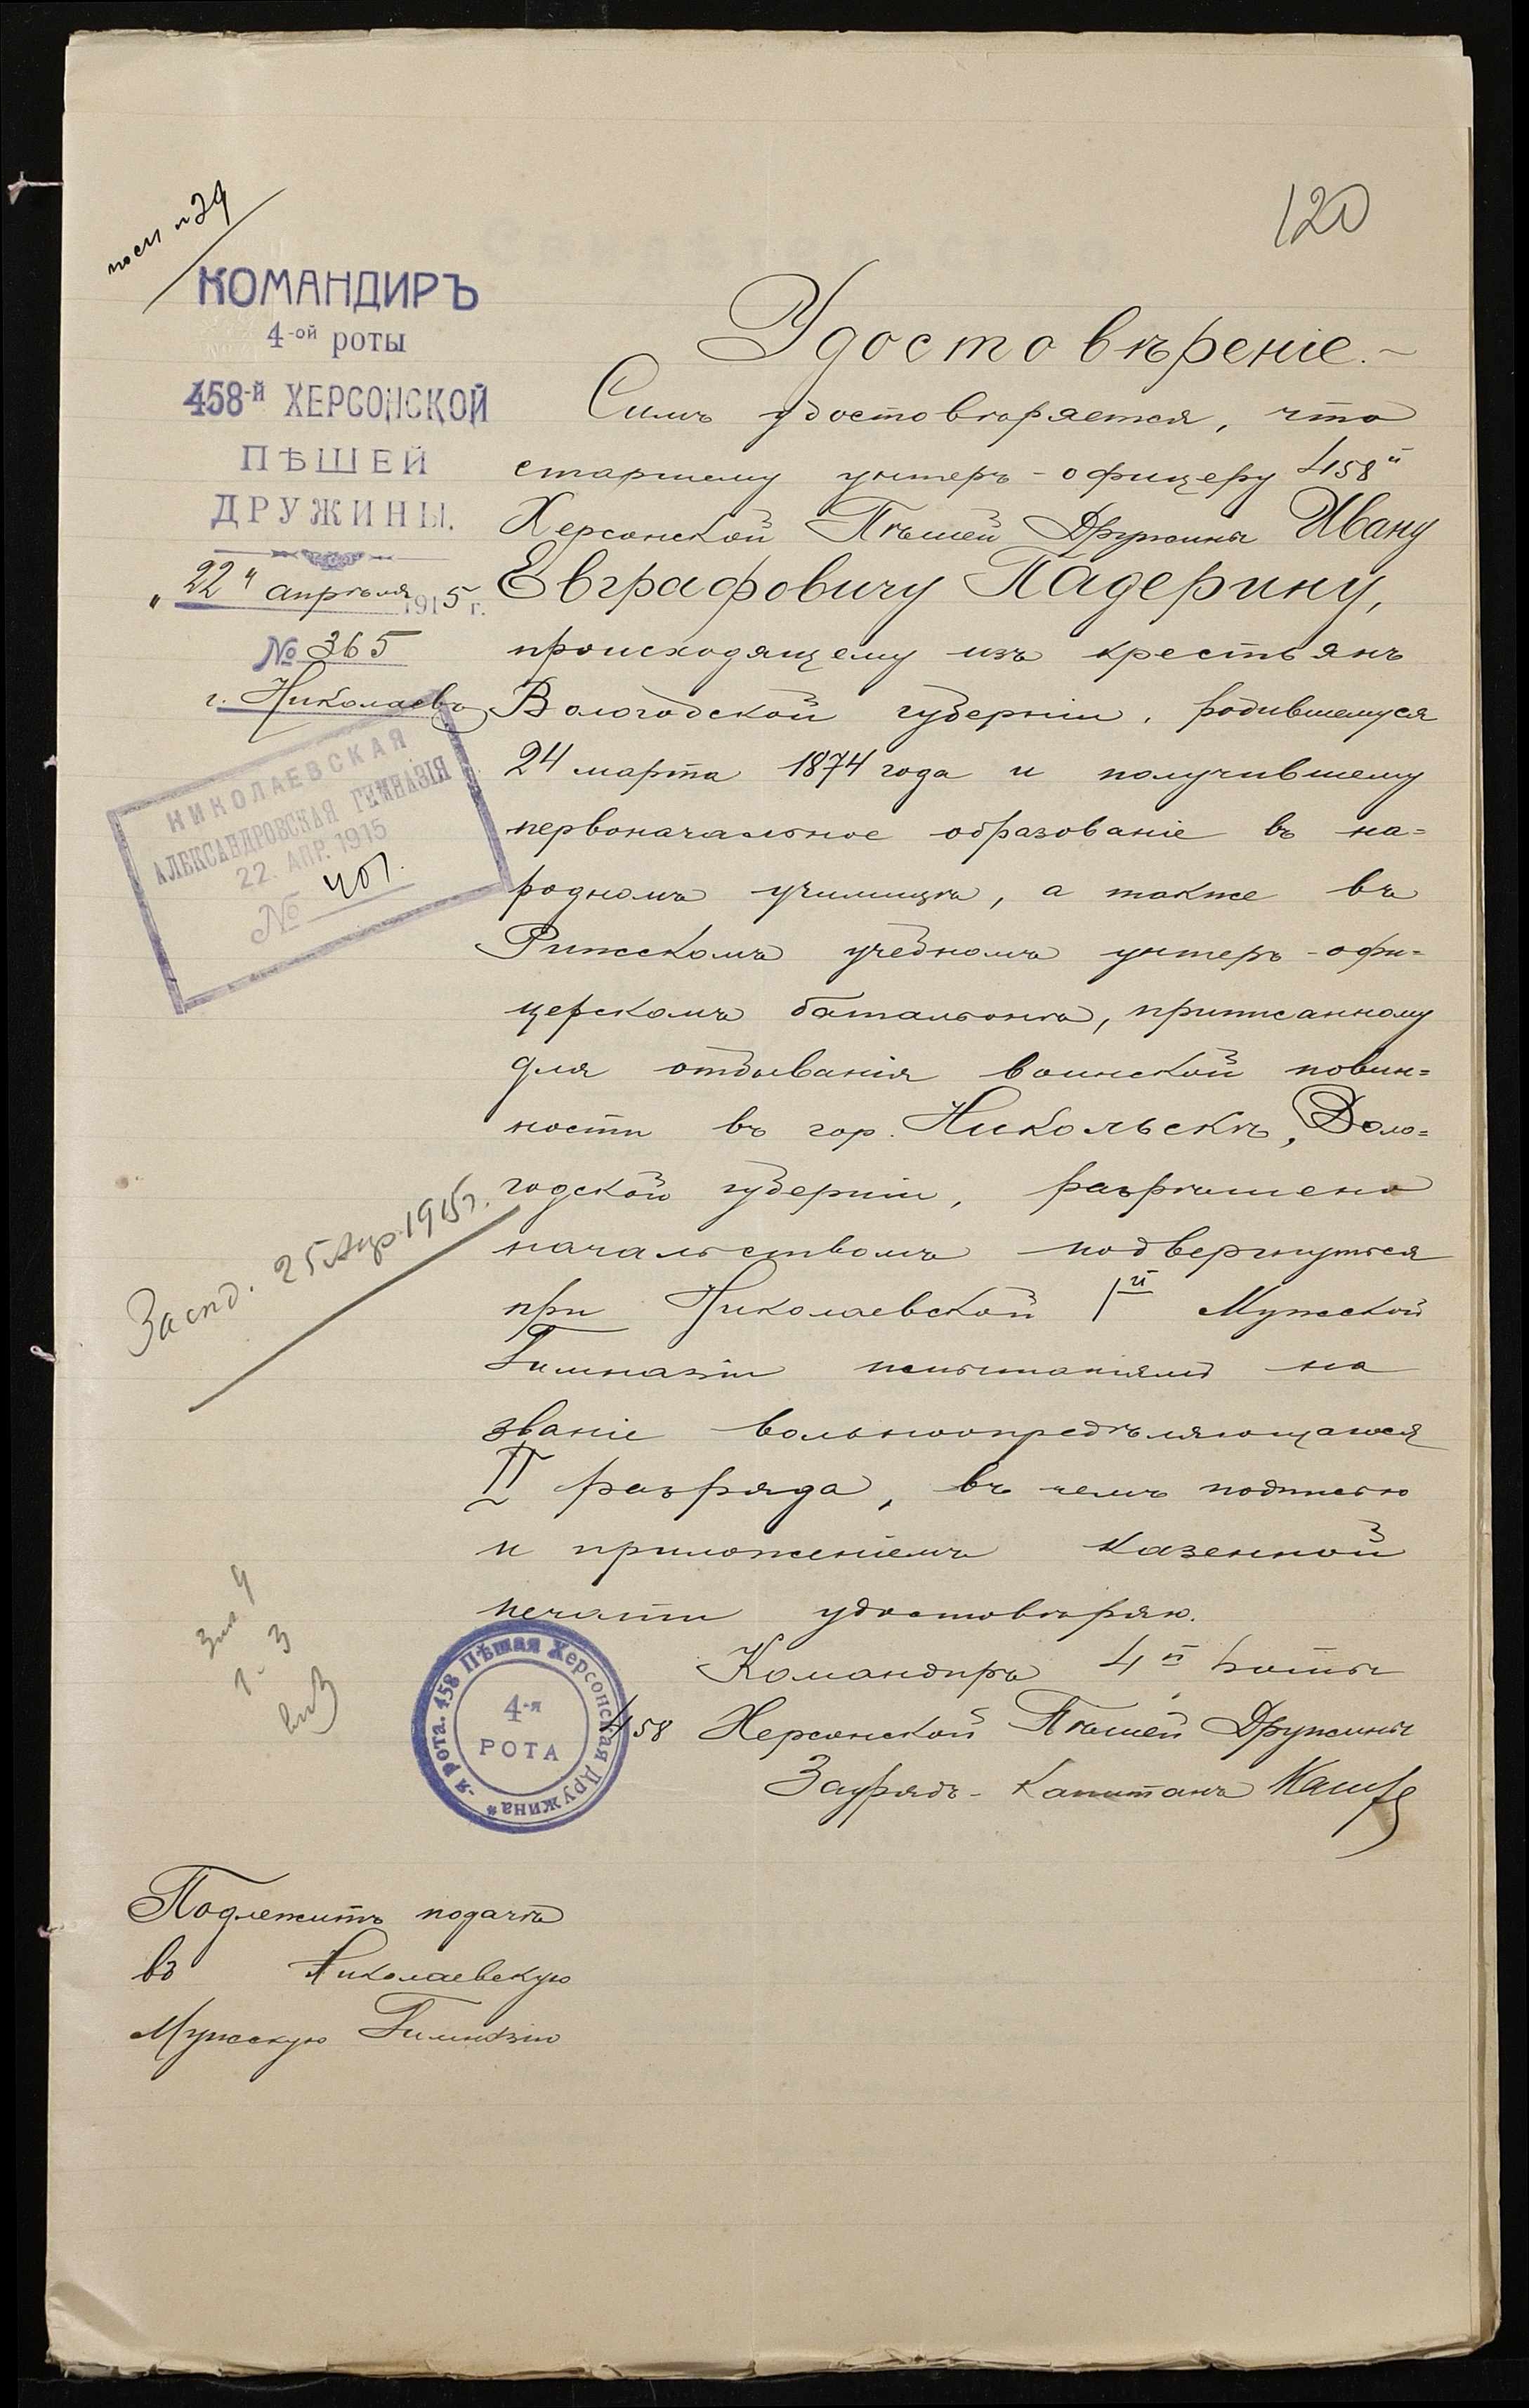 120
КОМАНДИРЪ
4-ой роты
458-й ХЕРСОНСКОЙ
ПѢШЕЙ
ДРУЖИНЫ.
"22" апрѣля 1915 г.
№ 365
г. Николаевъ
НИКОЛАЕВСКАЯ
АЛЕКСАНДРОВСКАЯ ГИМНАЗІЯ
22. АПР. 1915
№ 401.
Удостовѣреніе.
Симъ удостовѣряется, что
старшему унтеръ-офицеру 458й
Херсонской Пѣшей Дружины Ивану
Евграфовичу Падерину,
происходящему изъ крестьянъ
Вологодской губерніи, родившемуся
24 марта 1874 года и получившему
первоначальное образованіе въ на=
родномъ училищѣ, а также въ
Рижскомъ учебномъ унтеръ-офи=
церскомъ баталіонѣ, приписанному
для отбыванія воинской повин=
ности въ гор. Никольскѣ, Воло=
годской губерніи, разрѣшено
начальствомъ подвергнуться
при Николаевской 1й Мужской
Гимназіи испытаніямъ на
званіе вольноопредѣляющагося
II разряда, въ чемъ подписью
и приложеніемъ казенной
печати удостовѣряю.
Командиръ 4й роты
458 Херсонской Пѣшей Дружины
Заурядъ-Капитанъ
25 Апр. 1915г.
4-я РОТА
-я рота. 458 Пѣшая Херсонская Дружина*
Подлежитъ подачѣ
въ Николаевскую
Мужскую Гимназію